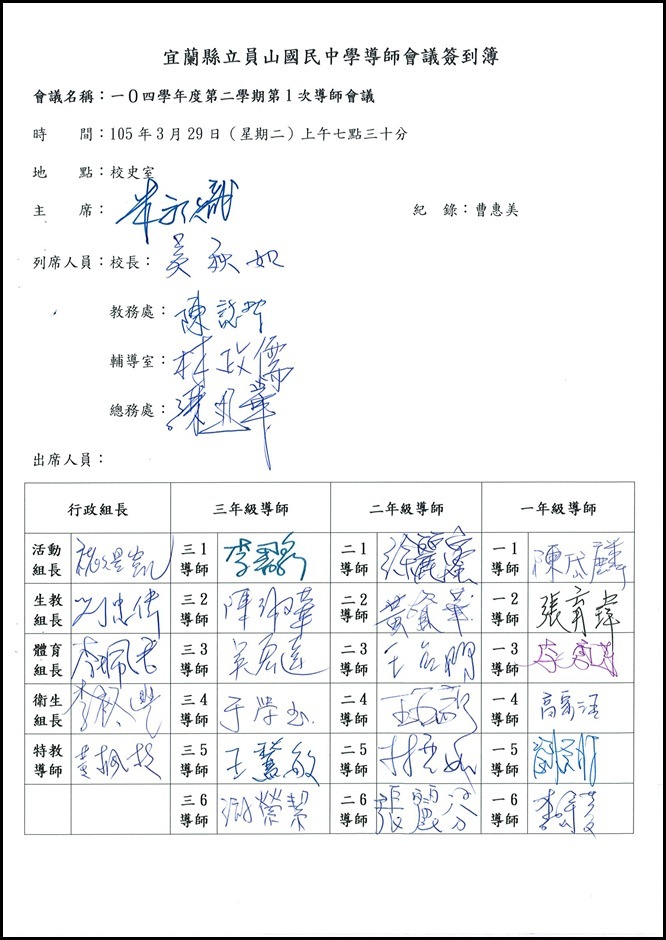 宜蘭縣立員山國民中學導師會議簽到簿
會議名稱：一０四學年度第二學期第1次導師會議
時　　間：105年3月29日（星期二）上午七點三十分
地　　點：校史室
主　　席：　　　　紀　錄：曹惠美
列席人員：校長：吳秋如
教務處：陳
輔導室：林政儒
總務處：陳
出席人員：
行政組長　三年級導師　二年級導師　一年級導師
活動組長　三1導師 李　二1導師 徐麗　一1導師 陳岱麟
生教組長 劉忠　三2導師 陳淑華　二2導師 黃資華　一2導師 張育瑋
體育組長 李珮　三3導師 吳宏達　二3導師 王　一3導師 李
衛生組長 李　三4導師 于學　二4導師 王　一4導師 高
特教導師 黃　三5導師 王慧敏　二5導師 林　一5導師 劉
三6導師 榮絜　二6導師 張麗芬　一6導師 李